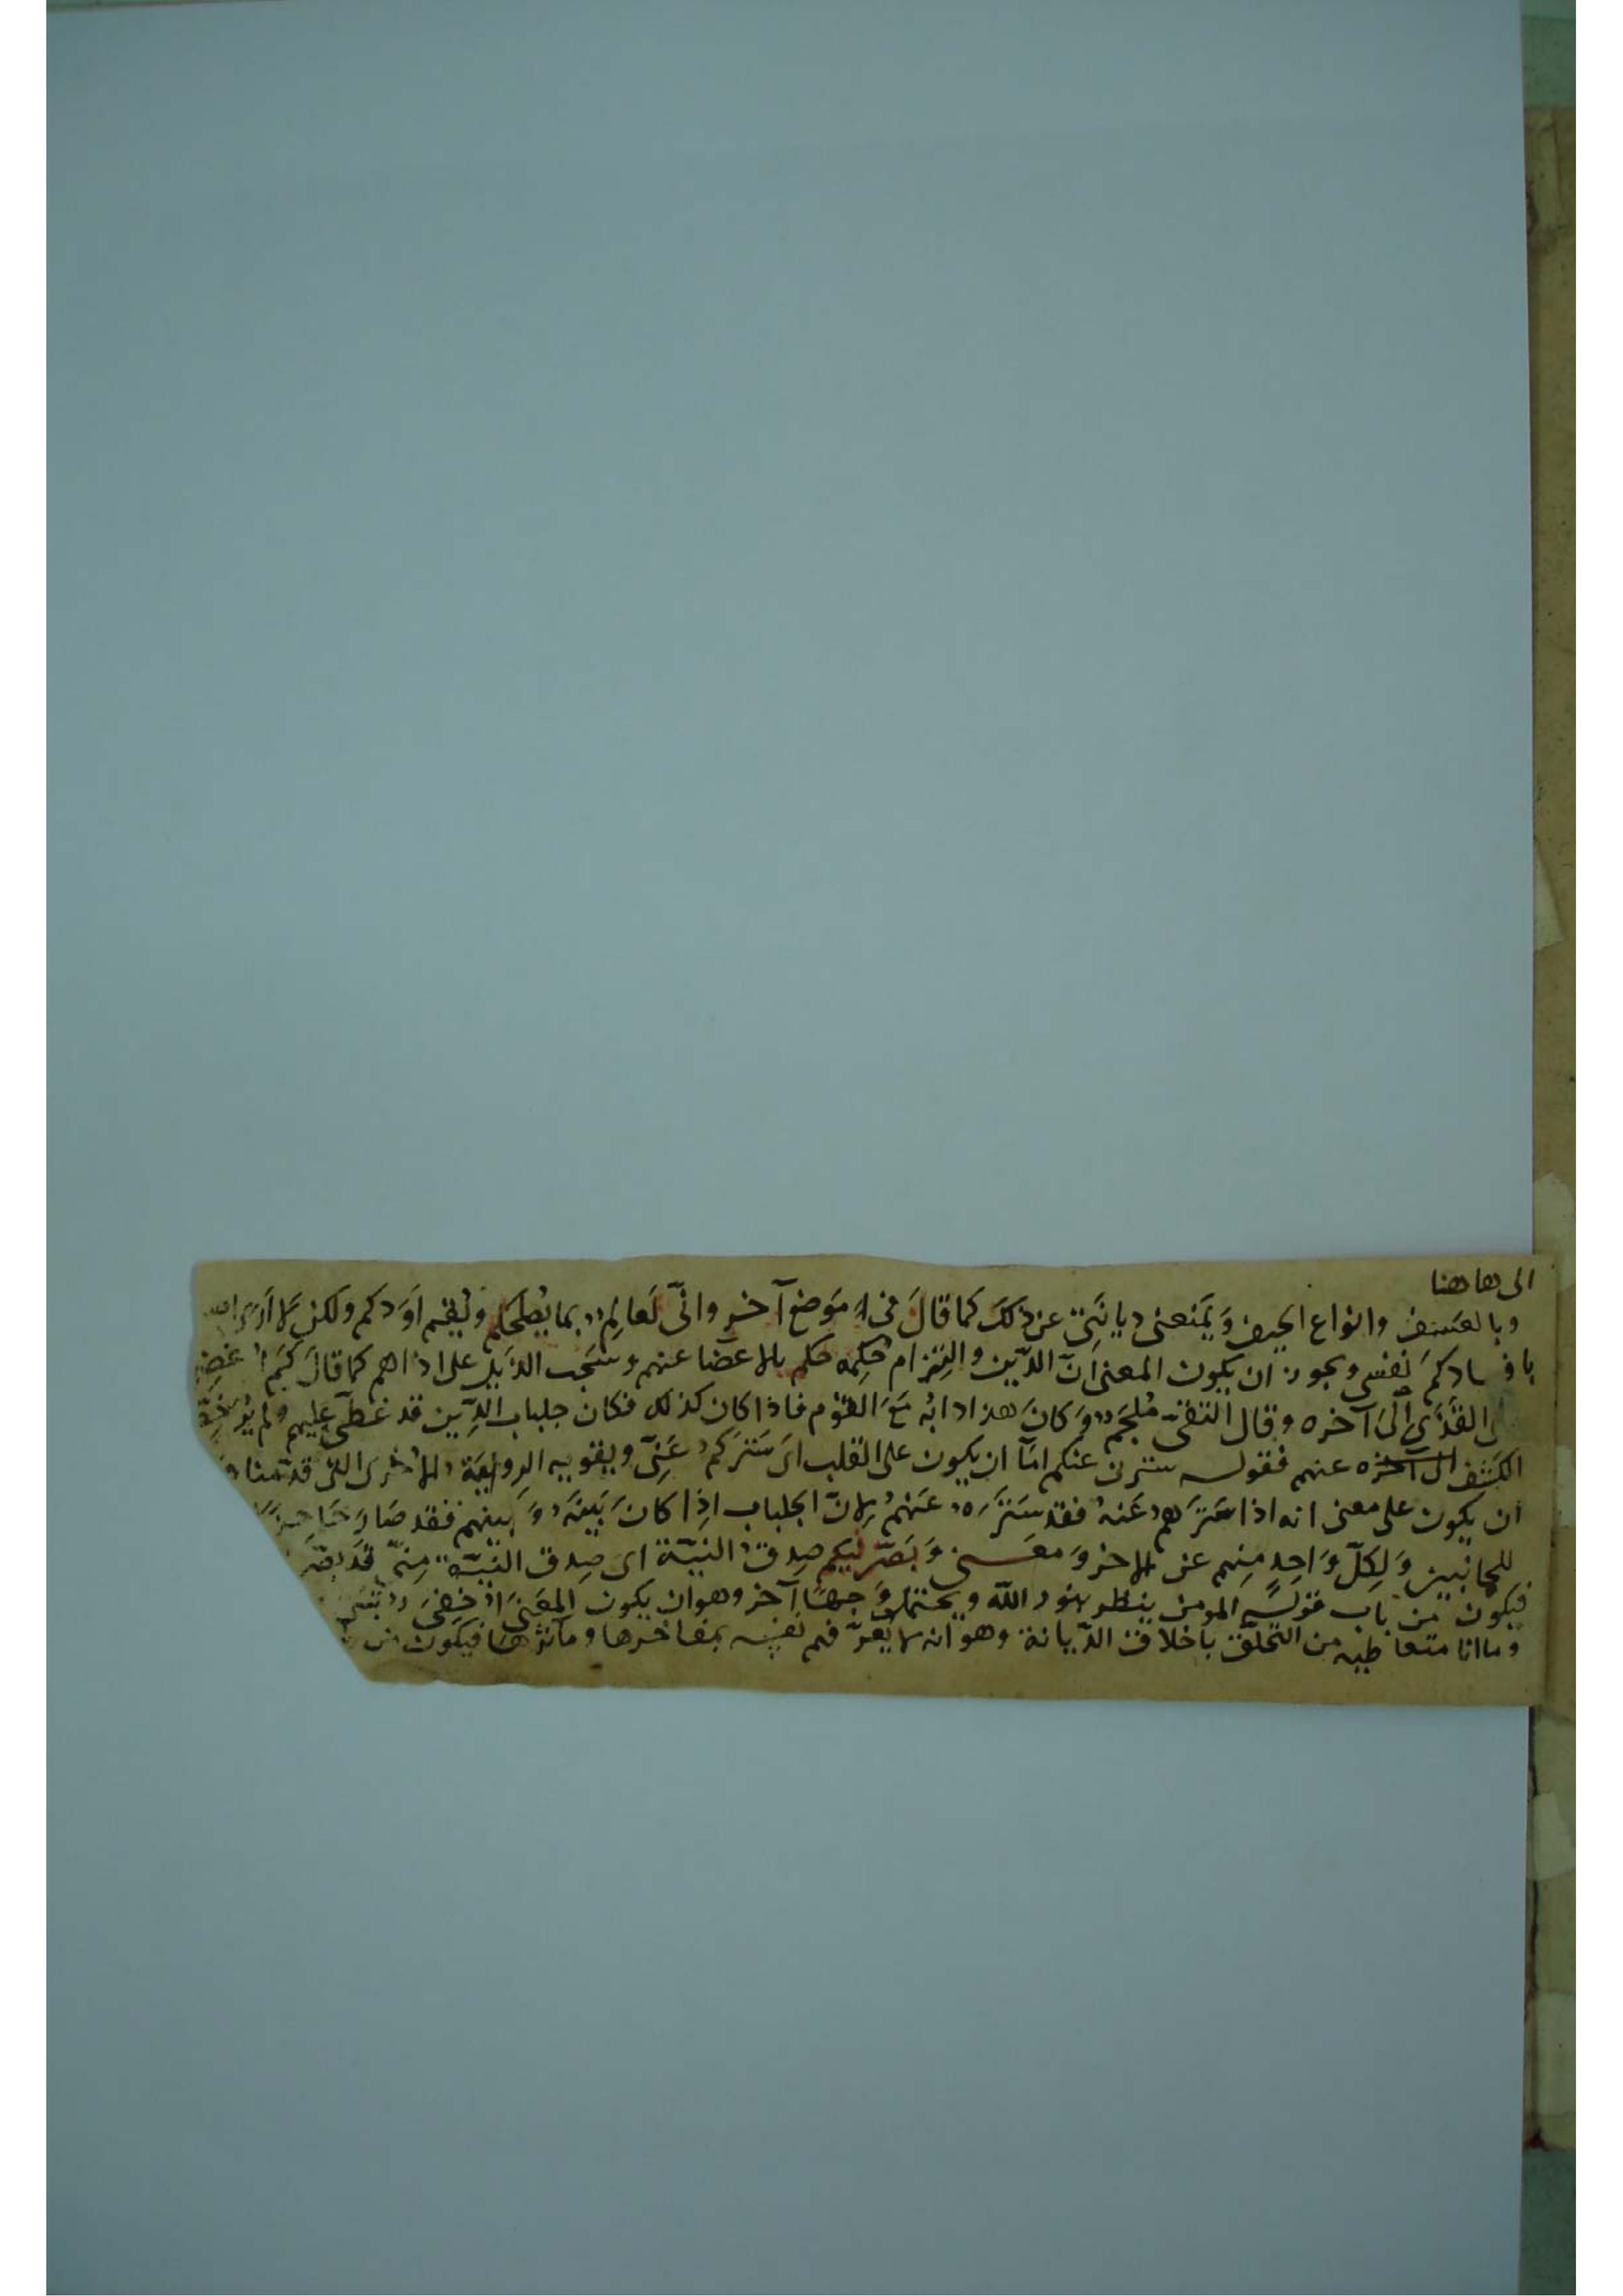 الى هاهنا
وبالعسف وانواع الحيف وَيمَنعنى ديانَتِى عن ذلكَ كما قالَ فى مَوضع آخر وانّى لَعالِم بما يُصلحكم ويُقيم اوَدكم ولكن لا اَرَى
بافسادكم نفسى ويجوز ان يكون المعنى انّ الدّين والتِزام حكمه حكم بالاغضا عنهم وسَحب الذَيل على اذاهم كما قالَ
القَذَى الَى آخره وقال التقىّ مُلجَم وَكانَ هذا دابُه مَعَ القوم فاذا كان كذلك فكان جلباب الدّين قد غطّى عليهم ولم
الكشف عنهم فقوله سترنى عنكم امّا ان يكون على القلب اىْ سَتَرَكم عَنِّى ويقويه الروايَة الاخرى التى قدّمنا
ان يكون على معنى انه اذا سَتَرَهم عَنهُ فقد سَتَرَه عَنهُم لانّ الجلباب اذا كانَ بَينَه وَبينهم فقد صَارَ حَاجزًا
للجانبين وَلكلّ وَاحد منهم عن الاخر وَمعنى وَبَصّرنيكم صِدق النيّة اى صِدق النيّة مِنّى قد
فيكون من باب قوله المومن ينظر بنور الله ويحتمل وَجهًا آخر وهو ان يكون المعَنى اخفى
وما انا متعاطيه من التخلّق باخلاق الدّيانة وهو انه لا يعرّفهم نفسه بمفاخرها ومآثرها فيكون من